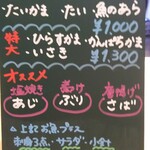 たいかま　たい　魚のあら
¥1,000
特大　ひらすかま　かんぱちかま
いさき　¥1,300
オススメ
塩焼き　煮つけ　唐揚げ
あじ　ぶり　さば
△上記お魚プラス
3点・サラダ・小金